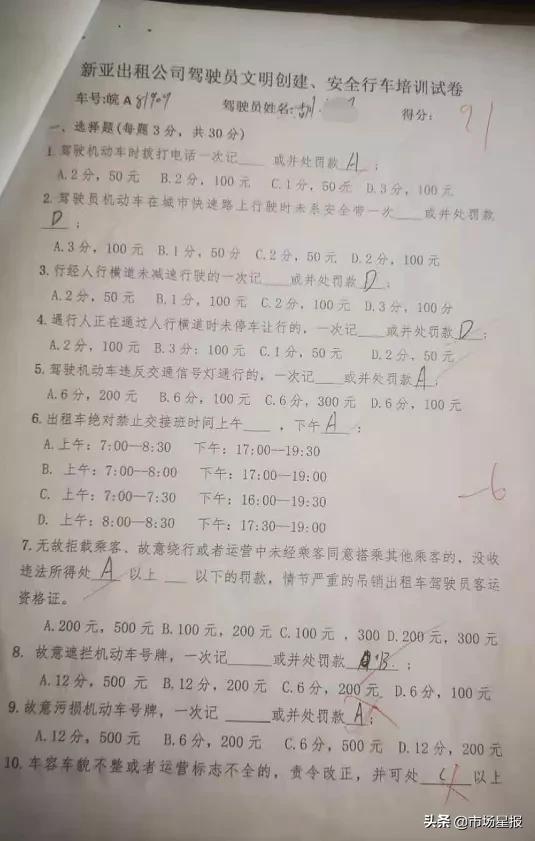 新亚出租公司驾驶员文明创建、安全行车培训试卷
车号:皖A 81909 驾驶员姓名: 得分: 91
一、选择题(每题3分，共30分)
1.驾驶机动车时拨打电话一次记____或并处罚款 A ;
A.2分，50元 B.2分，100元 C.1分，50元 D.3分，100元
2.驾驶员机动车在城市快速路上行驶时未系安全带一次____或并处罚款
D ;
A.3分，100元 B.1分，50分 C.2分，50元 D.2分，100元
3.行经人行横道未减速行驶的一次记____或并处罚款 D ;
A.2分，50元 B.1分，100元 C.2分，100元 D.3分，100分
4.遇行人正在通过人行横道时未停车让行的，一次记____或并处罚款 D ;
A.2分，100元 B.3分；100元 C.1分，50元 D.2分，50元
5.驾驶机动车违反交通信号灯通行的，一次记____或并处罚款 A ;
A.6分，200元 B.6分，100元 C.6分，300元 D.6分，100元
6.出租车绝对禁止交接班时间上午____，下午 A ;
A.上午：7:00—8:30 下午：17:00—19:30
B. 上午：7:00—8:00 下午：17:00—19:00
-6
C. 上午：7:00—7:30 下午：16:00—19:30
D. 上午：8:00—8:30 下午：17:30—19:00
7.无故拒载乘客、故意绕行或者运营中未经乘客同意搭乘其他乘客的，没收
违法所得处 A 以上 ___ 以下的罚款，情节严重的吊销出租车驾驶员客运
资格证。
A.200元，500元 B.100元，200元 C.100元 ，300 D.200元，300元
8. 故意遮拦机动车号牌，一次记_____或并处罚款 B ;
A.12分，500元 B.12分，200元 C.6分，200元 D.6分，100元
9.故意污损机动车号牌，一次记 _____或并处罚款 A ;
A.12分，500元 B.6分，200元 C.6分，500元 D.12分，200元
10.车容车貌不整或者运营标志不全的，责令改正，并可处 C 以上
头条 @市场星报